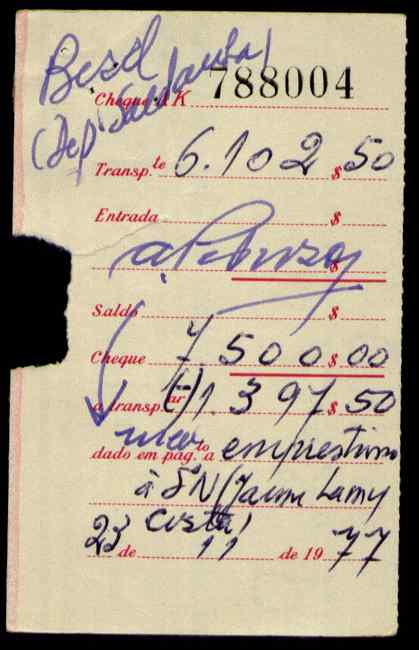 Besd
Cheque K 788004
(dep
Transp.te 6.102 $ 50
Entrada $
$
Saldo $
Cheque 7 500 $ 00
a transp.ar (-) 1.397 $ 50
dado em pag.to a empréstimo
à SN (Jaime Lamy
Costa)
23 de 11 de 1977